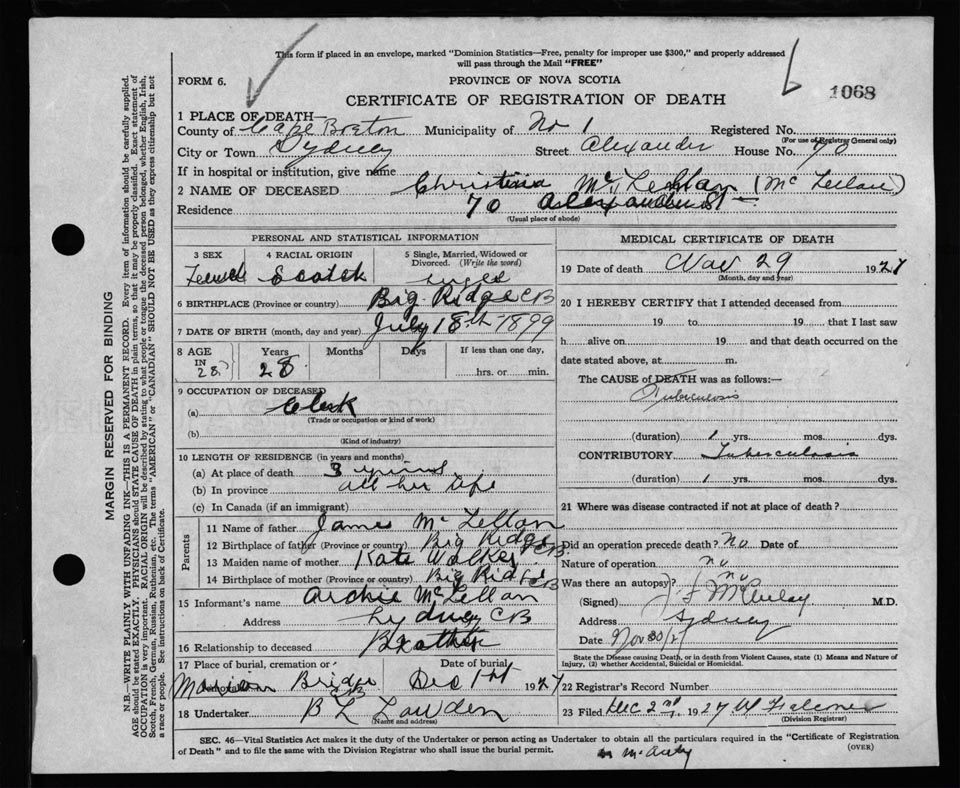 This form if placed in an envelope, marked "Dominion Statistics—Free, penalty for improper use $300," and properly addressed
will pass through the Mail "FREE"
FORM 6.
PROVINCE OF NOVA SCOTIA
1068
CERTIFICATE OF REGISTRATION OF DEATH
1 PLACE OF DEATH—
County of Cape Breton Municipality of No 1 Registered No.
(For use of Registrar General only)
City or Town Sydney Street Alexander House No. 70
If in hospital or institution, give name
2 NAME OF DECEASED Christina McLellan (McLellan)
Residence 70 Alexander St
(Usual place of abode)
PERSONAL AND STATISTICAL INFORMATION
3 SEX 4 RACIAL ORIGIN 5 Single, Married, Widowed or Divorced. (Write the word)
Female Scotch Single
6 BIRTHPLACE (Province or country) Big Ridge CB
7 DATE OF BIRTH (month, day and year) July 18th 1899
8 AGE IN 28 Years 28 Months Days If less than one day, hrs. or min.
9 OCCUPATION OF DECEASED
(a) Clerk
(Trade or occupation or kind of work)
(b)
(Kind of industry)
10 LENGTH OF RESIDENCE (in years and months)
(a) At place of death 3 years
(b) In province all her life
(c) In Canada (if an immigrant)
Parents
11 Name of father James McLellan
12 Birthplace of father (Province or country) Big Ridge CB
13 Maiden name of mother Kate Walker
14 Birthplace of mother (Province or country) Big Ridge CB
15 Informant's name Archie McLellan
Address Sydney CB
16 Relationship to deceased Brother
17 Place of burial, cremation or Date of burial
Marion Bridge CB Dec 1st 1927
18 Undertaker B L Lowden
(Name and address)
MEDICAL CERTIFICATE OF DEATH
19 Date of death Nov 29 1927
(Month, day and year)
20 I HEREBY CERTIFY that I attended deceased from
19 to 19 that I last saw
h alive on 19 and that death occurred on the
date stated above, at m.
The CAUSE of DEATH was as follows:—
Tuberculosis
(duration) 1 yrs. mos. dys.
CONTRIBUTORY Tuberculosis
(duration) 1 yrs. mos. dys.
21 Where was disease contracted if not at place of death?
Did an operation precede death? no Date of
Nature of operation no
Was there an autopsy? no
(Signed) McAulay M.D.
Address Sydney
Date Nov 30/27
State the Disease causing Death, or in death from Violent Causes, state (1) Means and Nature of
Injury, (2) whether Accidental, Suicidal or Homicidal.
22 Registrar's Record Number
23 Filed Dec 2nd, 1927 Falconer
(Division Registrar)
SEC. 46—Vital Statistics Act makes it the duty of the Undertaker or person acting as Undertaker to obtain all the particulars required in the "Certificate of Registration
of Death" and to file the same with the Division Registrar who shall issue the burial permit.
(OVER)
MARGIN RESERVED FOR BINDING
N.B.—WRITE PLAINLY WITH UNFADING INK—THIS IS A PERMANENT RECORD. Every item of information should be carefully supplied.
AGE should be stated EXACTLY. PHYSICIANS should STATE CAUSE OF DEATH in plain terms, so that it may be properly classified. Exact statement of
OCCUPATION is very important. RACIAL ORIGIN will be described by stating to what people or tongue the deceased person belonged, whether English, Irish,
Scotch, French, German, Russian, Ruthenian, etc. The terms "AMERICAN" or "CANADIAN" SHOULD NOT BE USED as they express citizenship but not
a race or people. See instructions on back of Certificate.